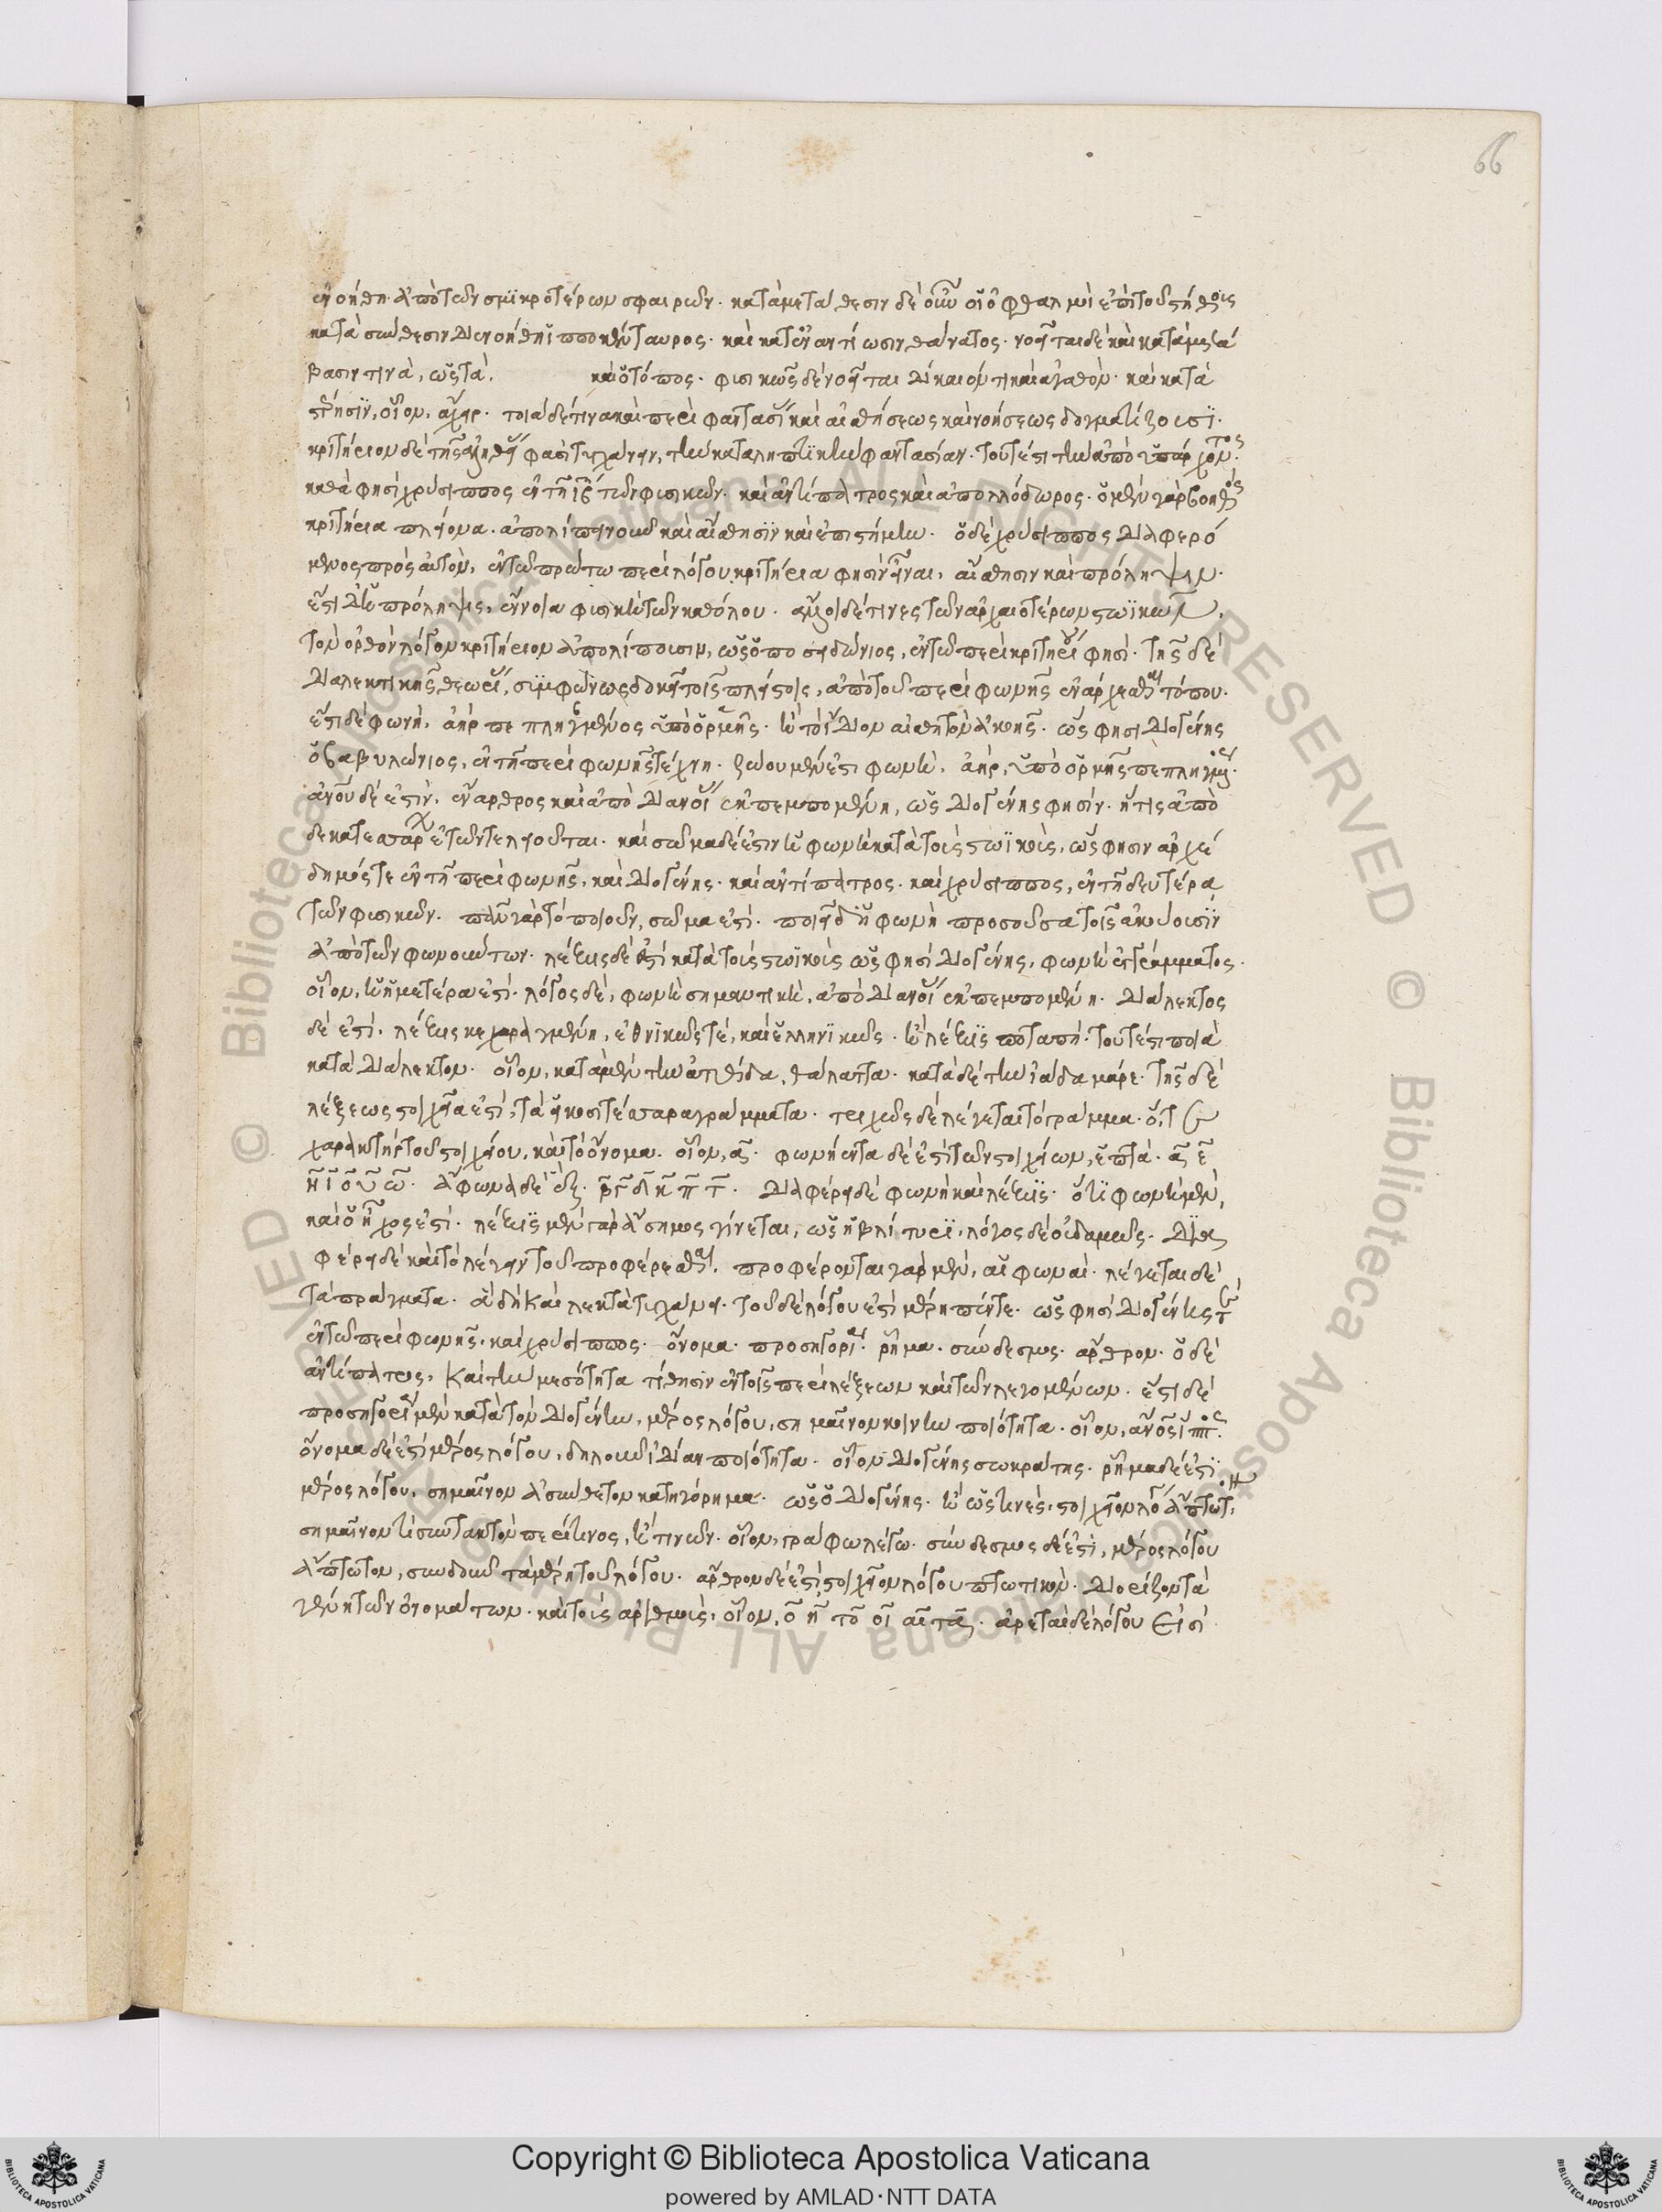 66
ἐνοήθη ἀπὸ τῶν σμικροτέρων σφαιρῶν. κατὰ μετάθεσιν δὲ οἷον οἱ ὀφθαλμοὶ ἐπὶ τοῦ στήθους
κατὰ σύνθεσιν δὲ ἐνοήθη ἱπποκένταυρος. καὶ κατ' ἐναντίωσιν θάνατος. νοεῖται δὲ καὶ κατὰ μετά
βασιν τινὰ, ὡς τὰ. καὶ ὁ τόπος. φυσικῶς δὲ νοεῖται δίκαιόν τι καὶ ἀγαθόν. καὶ κατὰ
στέρησιν, οἷον, ἄχειρ. τοιάδέ τινα καὶ περὶ φαντασίας καὶ αἰσθήσεως καὶ νοήσεως δογματίζουσι.
κριτήριον δὲ τῆς ἀληθείας φασὶ τυγχάνειν, τὴν καταληπτικὴν φαντασίαν. τουτέστι τὴν ἀπὸ ὑπάρχοντος.
καθά φησι χρύσιππος ἐν τῇ ιβ τῶν φυσικῶν. καὶ ἀντίπατρος καὶ ἀπολλόδωρος. ὁ μὲν γὰρ βοηθὸς
κριτήρια πλείονα ἀπολίπει νοῦν καὶ αἴσθησιν καὶ ἐπιστήμην. ὁ δὲ χρύσιππος διαφερό
μενος πρὸς αὐτὸν, ἐν τῷ πρώτω περὶ λόγου κριτήρια φησὶν εἶναι, αἴσθησιν καὶ πρόληψιν.
ἔστι δ' ἡ πρόληψις, ἔννοια φυσικὴ τῶν καθόλου. ἄλλοι δέ τινες τῶν ἀρχαιοτέρων στωϊκῶν,
τὸν ὀρθὸν λόγον κριτήριον ἀπολίπουσιν, ὡς ὁ ποσιδώνιος, ἐν τῷ περὶ κριτηρίου φησί. τῆς δὲ
διαλεκτικῆς θεωρίας, συμφώνως δοκεῖ τοῖς πλείστοις, ἀπὸ τοῦ περὶ φωνῆς ἐνάρχεσθαι τόπου.
ἔστι δὲ φωνὴ, ἀὴρ πεπληγμένος ὑπὸ ὁρμῆς. ἢ τὸ ἴδιον αἰσθητὸν ἀκοῆς. ὥς φησι διογένης
ὁ βαβυλώνιος, ἐν τῇ περὶ φωνῆς τέχνη. ζώου μέν ἐστι φωνὴ, ἀὴρ, ὑπὸ ὁρμῆς πεπληγμένος.
ἀνου δέ ἐστιν, ἔναρθρος καὶ ἀπὸ διανοίας ἐκπεμπομένη, ὡς διογένης φησίν. ἥτις ἀπὸ
δεκατεσσάρων ἐτῶν τελειοῦται. καὶ σῶμα δέ ἐστιν ἡ φωνὴ κατὰ τοὺς στωϊκοὺς, ὥς φησιν ἀρχέ
δημός τε ἐν τῇ περὶ φωνῆς, καὶ διογένης. καὶ ἀντίπατρος. καὶ χρύσιππος, ἐν τῇ δευτέρα
τῶν φυσικῶν. πᾶν γὰρ τὸ ποιοῦν, σῶμα ἐστί. ποιεῖ δ' ἡ φωνὴ προσοῦσα τοῖς ἀκούουσιν
ἀπὸ τῶν φωνούντων. λέξις δέ ἐστι κατὰ τοὺς στωϊκοὺς ὥς φησι διογένης, φωνὴ ἐγγράμματος.
οἷον, ἡ ἡμετέρα ἐστί. λόγος δὲ, φωνὴ σημαντικὴ, ἀπὸ διανοίας ἐκπεμπομένη. διάλεκτος
δέ ἐστι, λέξις κεχαραγμένη, ἐθνικῶς τὲ, καὶ ἑλληνικῶς. ἢ λέξις ποταπή. τουτέστι ποιὰ
κατὰ διάλεκτον. οἷον, κατὰ μὲν τὴν ἀτθίδα, θάλαττα. κατὰ δὲ τὴν ἰάδα μάρε. τῆς δὲ
λέξεως στοιχεῖα ἐστί, τὰ εἰκοσιτέσσαρα γράμματα. τριχῶς δὲ λέγεται τὸ γράμμα. ὅ, τε
χαρακτὴρ τοῦ στοιχείου, καὶ τὸ ὄνομα. οἷον, α. φωνήεντα δέ ἐστι τῶν στοιχείων, ἑπτά. α ε
η ι ο υ ω. ἄφωνα δὲ ἕξ. β γ δ κ π τ. διαφέρει δὲ φωνὴ καὶ λέξις. ὅτι φωνὴ μὲν,
καὶ ὁ ἦχος ἐστί. λέξις μὲν γὰρ ἄσημος γίνεται, ὡς ἡ βλίτυρι, λόγος δὲ οὐδαμῶς. δια
φέρει δὲ καὶ τὸ λέγειν τοῦ προφέρεσθαι. προφέρονται γὰρ μὲν, αἱ φωναί. λέγεται δὲ
τὰ πράγματα. ἃ δὴ καὶ λεκτὰ τυγχάνει. τοῦ δὲ λόγου ἐστὶ μέρη πέντε. ὥς φησι διογένης τε
ἐν τῷ περὶ φωνῆς. καὶ χρύσιππος. ὄνομα. προσηγορία. ῥῆμα. σύνδεσμος. ἄρθρον. ὁ δὲ
ἀντίπατρος, καὶ τὴν μεσότητα τίθησιν ἐν τοῖς περὶ λέξεων καὶ τῶν λεγομένων. ἔστι δὲ
προσηγορία μὲν κατὰ τὸν διογένην, μέρος λόγου, σημαῖνον κοινὴν ποιότητα. οἷον, ἄνος ἵππος.
ὄνομα δέ ἐστι μέρος λόγου, δηλοῦν ἰδίαν ποιότητα. οἷον διογένης σωκράτης. ῥῆμα δέ ἐστι
μέρος λόγου, σημαῖνον ἀσύνθετον κατηγόρημα. ὡς ὁ διογένης. ἢ ὥς τινες, στοιχεῖον λόγου ἄπτωτον,
σημαῖνόν τι συντακτὸν περί τινος, ἢ τινῶν. οἷον, γράφω λέγω. σύνδεσμος δέ ἐστι, μέρος λόγου
ἄπτωτον, συνδοῦν τὰ μέρη τοῦ λόγου. ἄρθρον δέ ἐστι στοιχεῖον λόγου πτωτικὸν. διορίζον τὰ
γένη τῶν ὀνομάτων. καὶ τοὺς ἀριθμοὺς, οἷον, ὁ ἡ τὸ οἱ αἱ τὰ. ἀρεταὶ δὲ λόγου εἰσὶ
Copyright © Biblioteca Apostolica Vaticana
powered by AMLAD·NTT DATA